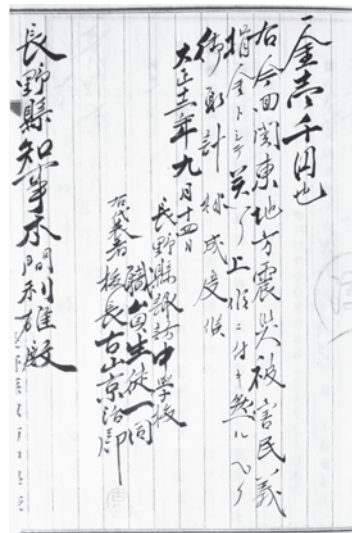 一金壱千円也
右今回関東地方震災被害民義
捐金トシテ差上候ニ付キ然ルヘク
御取計相成度候
大正十二年九月十四日
長野縣諏訪中学校
職員生徒一同
右代表者 校長 古山京治郎
長野縣知事本間利雄殿